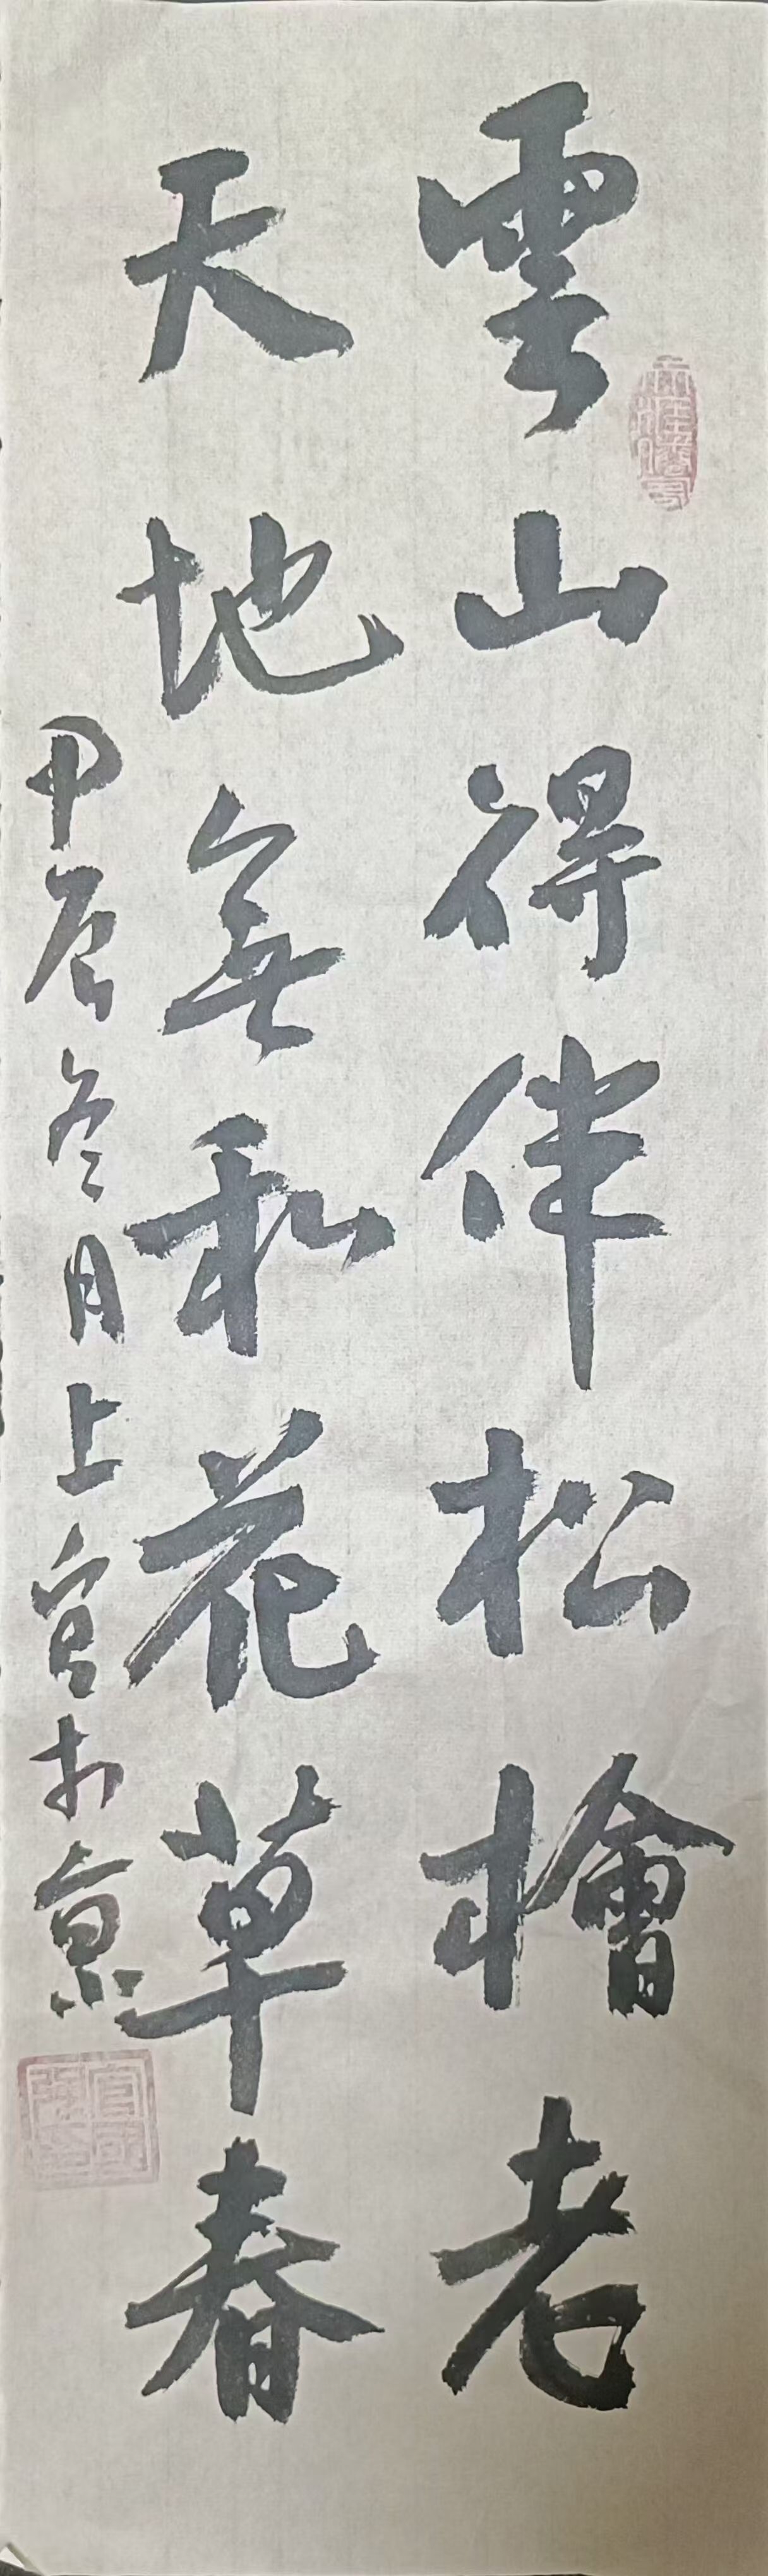 雲山得伴松檜老
天地無私花草春
甲辰冬月上官於京